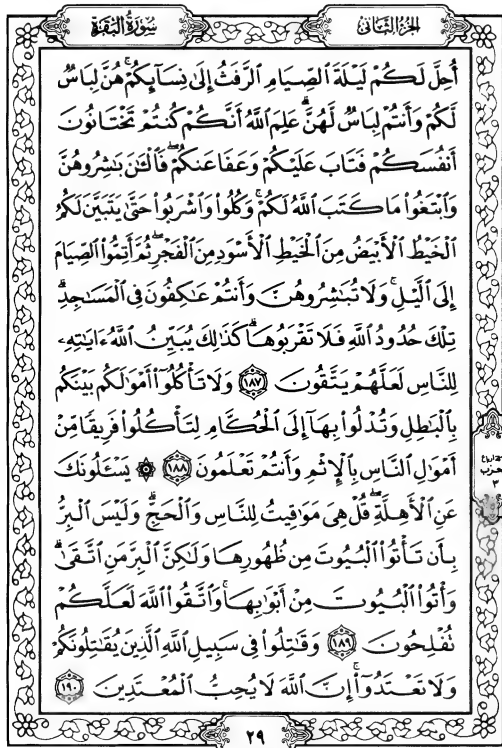 سُورَةُ البَقَرَةِ
الجزء الثاني
أُحِلَّ لَكُمْ لَيْلَةَ ٱلصِّيَامِ ٱلرَّفَثُ إِلَىٰ نِسَآئِكُمْ ۚ هُنَّ لِبَاسٌ
لَّكُمْ وَأَنتُمْ لِبَاسٌ لَّهُنَّ ۗ عَلِمَ ٱللَّهُ أَنَّكُمْ كُنتُمْ تَخْتَانُونَ
أَنفُسَكُمْ فَتَابَ عَلَيْكُمْ وَعَفَا عَنكُمْ ۖ فَٱلْـَٰٔنَ بَٰشِرُوهُنَّ
وَٱبْتَغُوا۟ مَا كَتَبَ ٱللَّهُ لَكُمْ ۚ وَكُلُوا۟ وَٱشْرَبُوا۟ حَتَّىٰ يَتَبَيَّنَ لَكُمُ
ٱلْخَيْطُ ٱلْأَبْيَضُ مِنَ ٱلْخَيْطِ ٱلْأَسْوَدِ مِنَ ٱلْفَجْرِ ۖ ثُمَّ أَتِمُّوا۟ ٱلصِّيَامَ
إِلَى ٱلَّيْلِ ۚ وَلَا تُبَٰشِرُوهُنَّ وَأَنتُمْ عَٰكِفُونَ فِى ٱلْمَسَٰجِدِ ۗ
تِلْكَ حُدُودُ ٱللَّهِ فَلَا تَقْرَبُوهَا ۗ كَذَٰلِكَ يُبَيِّنُ ٱللَّهُ ءَايَٰتِهِۦ
لِلنَّاسِ لَعَلَّهُمْ يَتَّقُونَ ١٨٧ وَلَا تَأْكُلُوٓا۟ أَمْوَٰلَكُم بَيْنَكُم
بِٱلْبَٰطِلِ وَتُدْلُوا۟ بِهَآ إِلَى ٱلْحُكَّامِ لِتَأْكُلُوا۟ فَرِيقًا مِّنْ
أَمْوَٰلِ ٱلنَّاسِ بِٱلْإِثْمِ وَأَنتُمْ تَعْلَمُونَ ١٨٨ ۞ يَسْـَٔلُونَكَ
عَنِ ٱلْأَهِلَّةِ ۖ قُلْ هِىَ مَوَٰقِيتُ لِلنَّاسِ وَٱلْحَجِّ ۗ وَلَيْسَ ٱلْبِرُّ
بِأَن تَأْتُوا۟ ٱلْبُيُوتَ مِن ظُهُورِهَا وَلَٰكِنَّ ٱلْبِرَّ مَنِ ٱتَّقَىٰ ۗ
وَأْتُوا۟ ٱلْبُيُوتَ مِنْ أَبْوَٰبِهَا ۚ وَٱتَّقُوا۟ ٱللَّهَ لَعَلَّكُمْ
تُفْلِحُونَ ١٨٩ وَقَٰتِلُوا۟ فِى سَبِيلِ ٱللَّهِ ٱلَّذِينَ يُقَٰتِلُونَكُمْ
وَلَا تَعْتَدُوٓا۟ ۚ إِنَّ ٱللَّهَ لَا يُحِبُّ ٱلْمُعْتَدِينَ ١٩٠
حزب
٣
٢٩